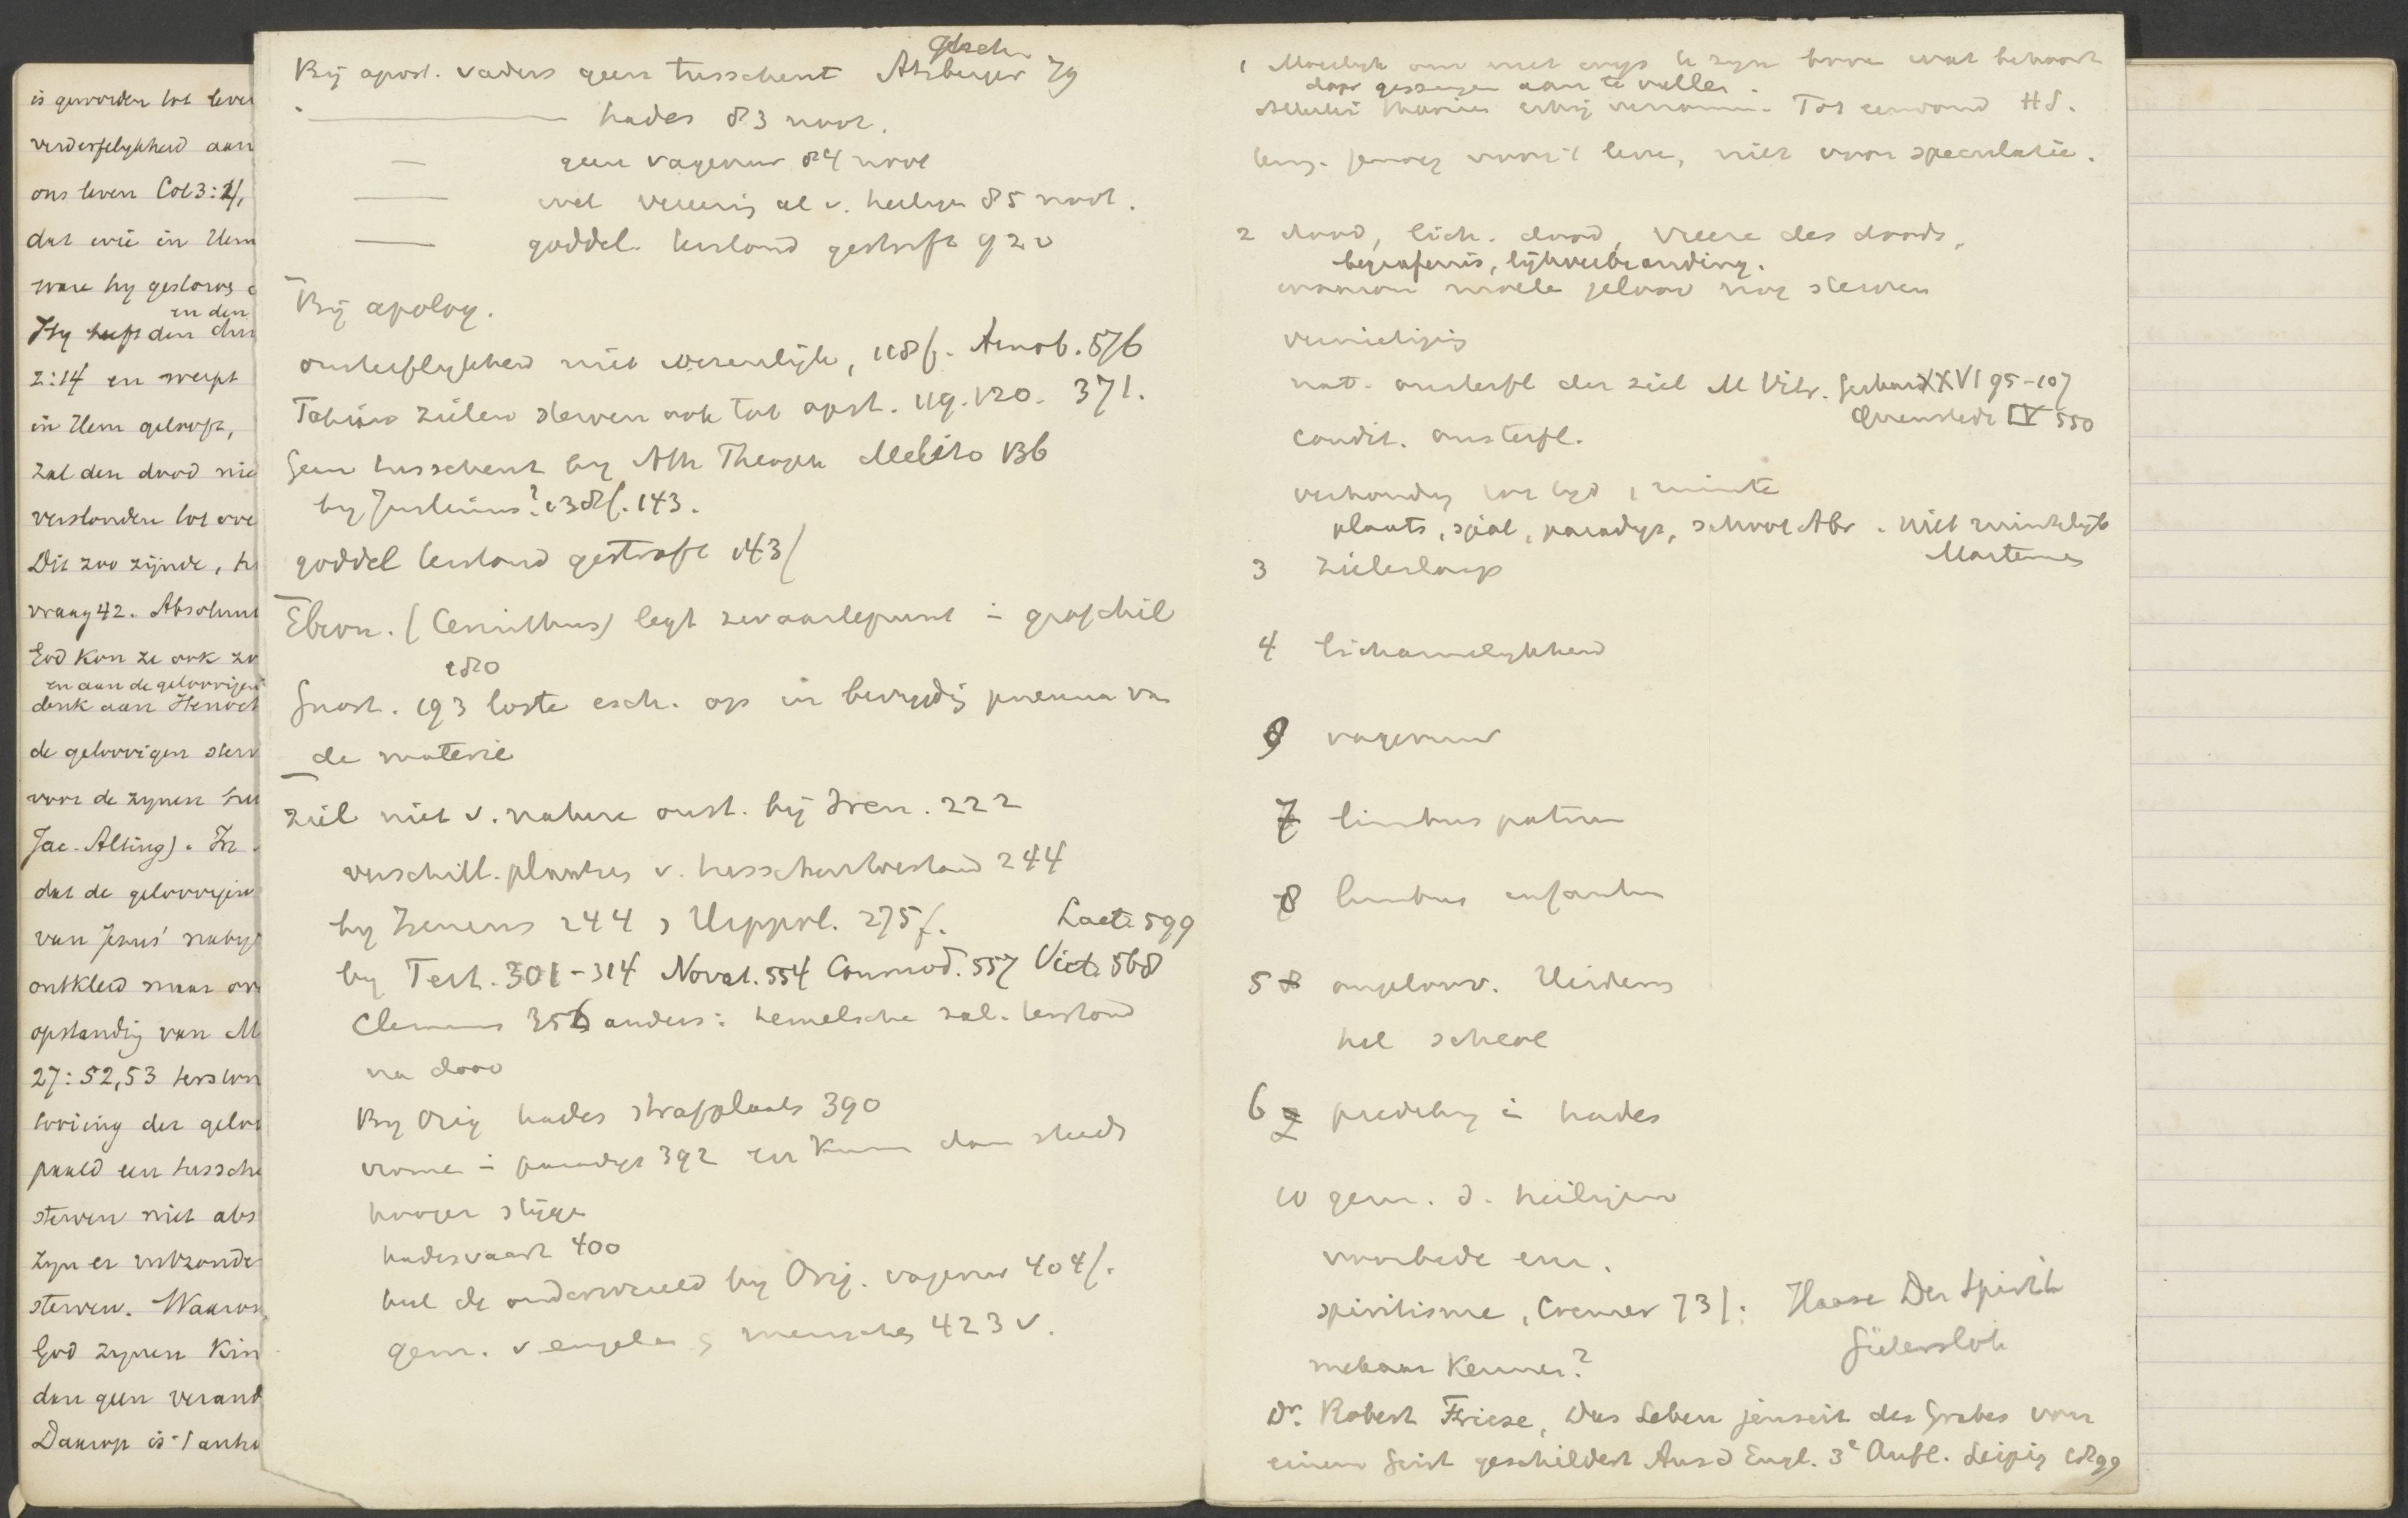 is geworden tot
verderfelykheid aan
ons leven Col 3:4,
dat wie in Hem
ware hy gestorv
in den
Hy heeft den
2:14 en werpt
in Hem gelooft,
zal den dood nie
verstonden tot
Dit zoo zijnde,
vraag 42. Absoluut
God kon ze ook zo
en aan de geloovigen
denk aan Henoch
de geloovigen sterv
voor de zynen
Jac. Alting). In
dat de geloovigen
van Jezus'
ontkleed maar ov
opstanding van M
27:52,53 terston
der gelo
een tussche
sterven niet abs
zyn er
sterven. Waarom
God zynen Kin
dan geen verand
Daarop is 't antw
Gesch.
Bij apost. vaders geen tusschent Atzberger 79
hades 83 noot.
geen vagevuur 84 noot
wel vereerig al v. heilige 85 noot.
goddel. terstond gestraft 92 v
Bij apolog.
onsterflykheid niet wezenlijk, 118 f. Arnob. 576
Tatian zielen sterven ook tot opst. 119. 120. 371.
Geen tusschent by Ath Theoph Melito 136
by Justinus? 138 f. 143.
goddel terstond gestraft 143 f
Ebion. (Cerinthus) legt zwaartepunt in
180
Gnost. 193 loste esch. op in bevryding pneuma van
de materie
ziel niet v. nature onst. bij Iren. 222
verschill. plaatsen v. tusschentoestand 244
by Irenaeus 244, Hippol. 275 f. Lact. 599
by Tert. 301-314 Novat. 554 Commod. 557 Vict. 568
Clemens 356 anders: hemelsche zal. terstond
na dood
By Orig hades strafplaats 390
vrome in paradys 392 en kunn dan steeds
hooger styge
hadesvaart 400
hel de onderwereld by Orig. vagevuur 404 f.
gem. v engelen menschen 423 v.
1 Moeilyk om niet wys te zyn boven wat behoort
door aan te vullen.
Tot eenvoud HS.
genoeg voor 't leve, niet voor speculatie.
2 dood, lich. dood, vreeze des doods,
begrafenis, lijkverbranding.
waarom moete geloov nog sterven
vernietiging
nat. onsterfl der ziel M Vitr. Gerhard XXVI 95-107
Quenstedt IV 550
condit. onsterfl.
verhouding tot tyd, ruimte
plaats, sjeol, paradys, schoot Abr. niet ruimtelijk
Martensen
3 zielenslaap
4 lichamelykheid
9 vagevuur
7 limbus patrum
8 limbus infantum
5 ongeloov. Heidens
hel scheol
6 prediking in hades
10 gem. d. heiligen
voorbede enz.
spiritisme, Cremer 73 f. Haase Der Spirit
Gütersloh
mekaar kennen?
Dr. Robert Friese, Das Leben jenseit des Grabes von
einem Geist geschildert Aus d Engl. 3e Aufl. Leipzig 1899